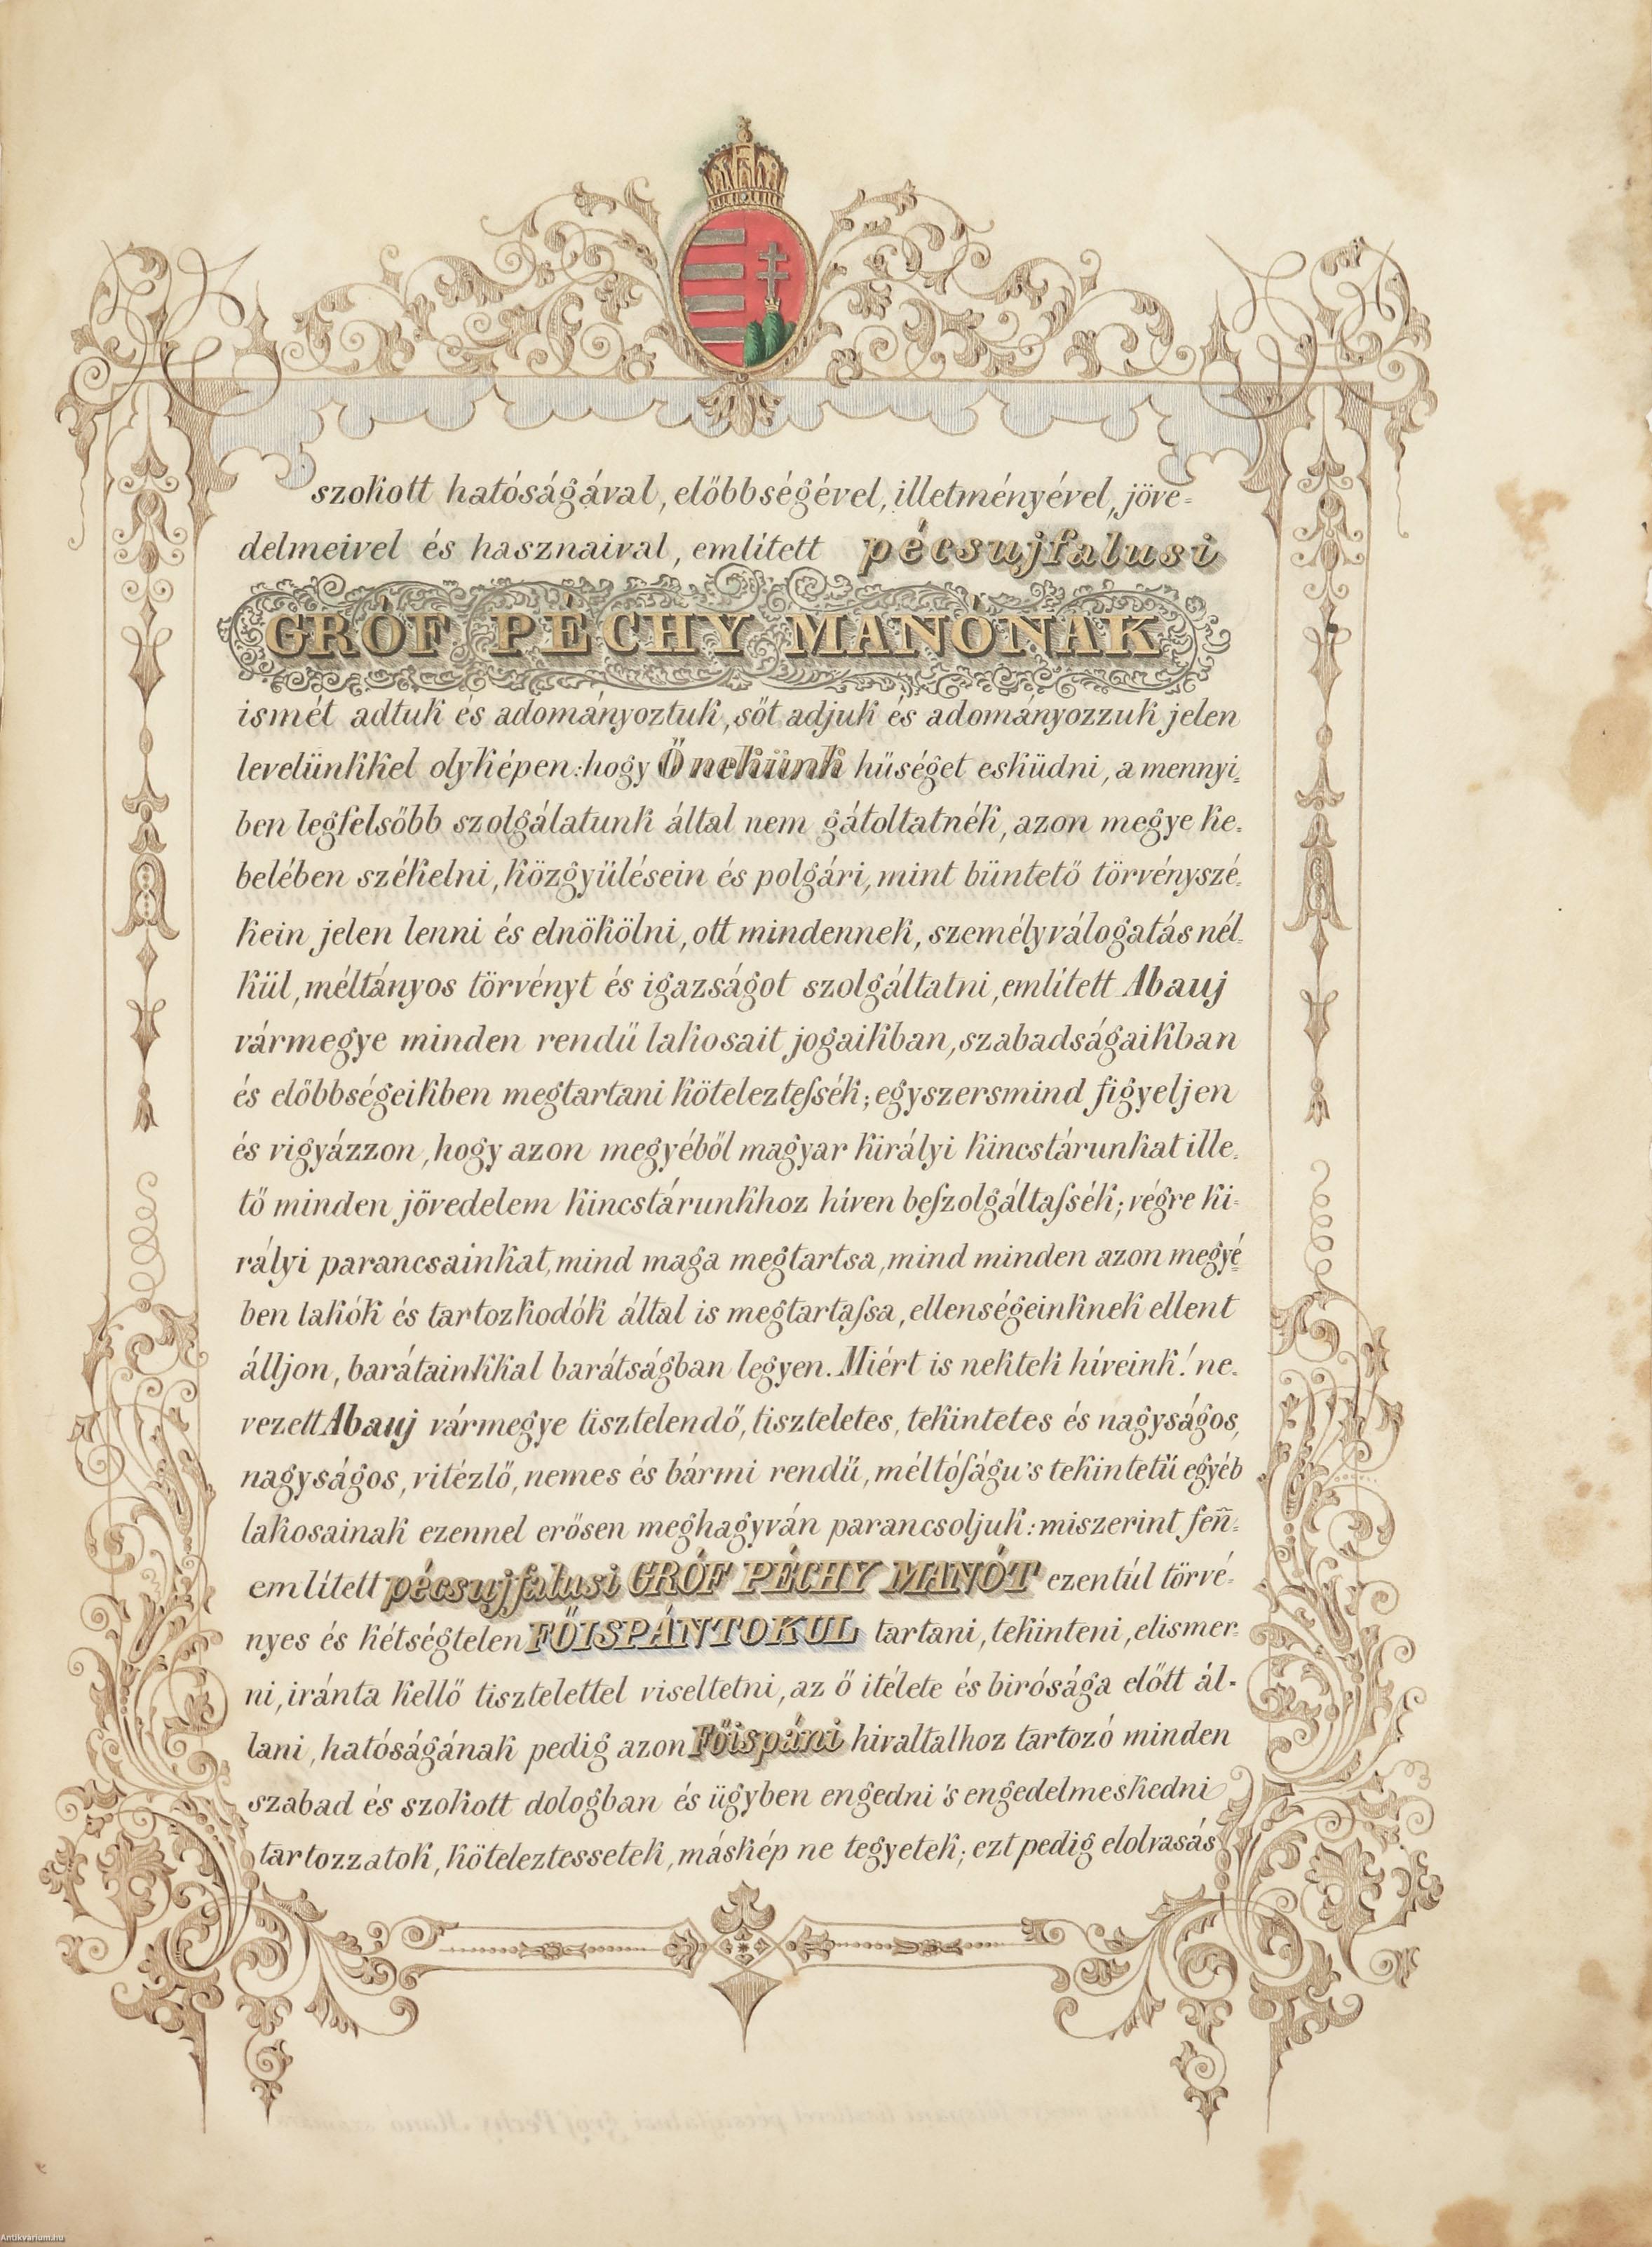 szokott hatóságával, előbbségével, illetményével, jöve=
delmeivel és hasznaival, említett pécsujfalusi
GRÓF PÉCHY MANÓNAK
ismét adtuk és adományoztuk, sőt adjuk és adományozzuk jelen
levelünkkel olyképen: hogy Ő nekünk hűséget esküdni, a mennyi=
ben legfelsőbb szolgálatunk által nem gátoltatnék, azon megye ke=
belében székelni, közgyülésein és polgári, mint büntető törvényszé=
kein jelen lenni és elnökölni, ott mindennek, személyválogatás nél=
kül, méltányos törvényt és igazságot szolgáltatni, említett Abauj
vármegye minden rendű lakosait jogaikban, szabadságaikban
és előbbségeikben megtartani kötelezteſsék; egyszersmind figyeljen
és vigyázzon, hogy azon megyéből magyar királyi kincstárunkat ille=
tő minden jövedelem kincstárunkhoz híven beſzolgáltaſsék; végre ki=
rályi parancsainkat, mind maga megtartsa, mind minden azon megyé=
ben lakók és tartozkodók által is megtartaſsa, ellenségeinknek ellent
álljon, barátainkkal barátságban legyen. Miért is nektek híveink! ne=
vezett Abauj vármegye tisztelendő, tiszteletes, tekintetes és nagyságos,
nagyságos, vitézlő, nemes és bármi rendű, méltóſágu's tekintetű egyéb
lakosainak ezennel erősen meghagyván parancsoljuk: miszerint fen̄=
említett pécsujfalusi GRÓF PÉCHY MANÓT ezentúl törvé=
nyes és kétségtelen FŐISPÁNTOKUL tartani, tekinteni, elismer=
ni, iránta kellő tisztelettel viseltetni, az ő itélete és birósága előtt ál=
lani, hatóságának pedig azon Főispáni hivaltalhoz tartozó minden
szabad és szokott dologban és ügyben engedni 's engedelmeskedni
tartozzatok, köteleztessetek, máskép ne tegyetek; ezt pedig elolvasás
Antikvarium.hu